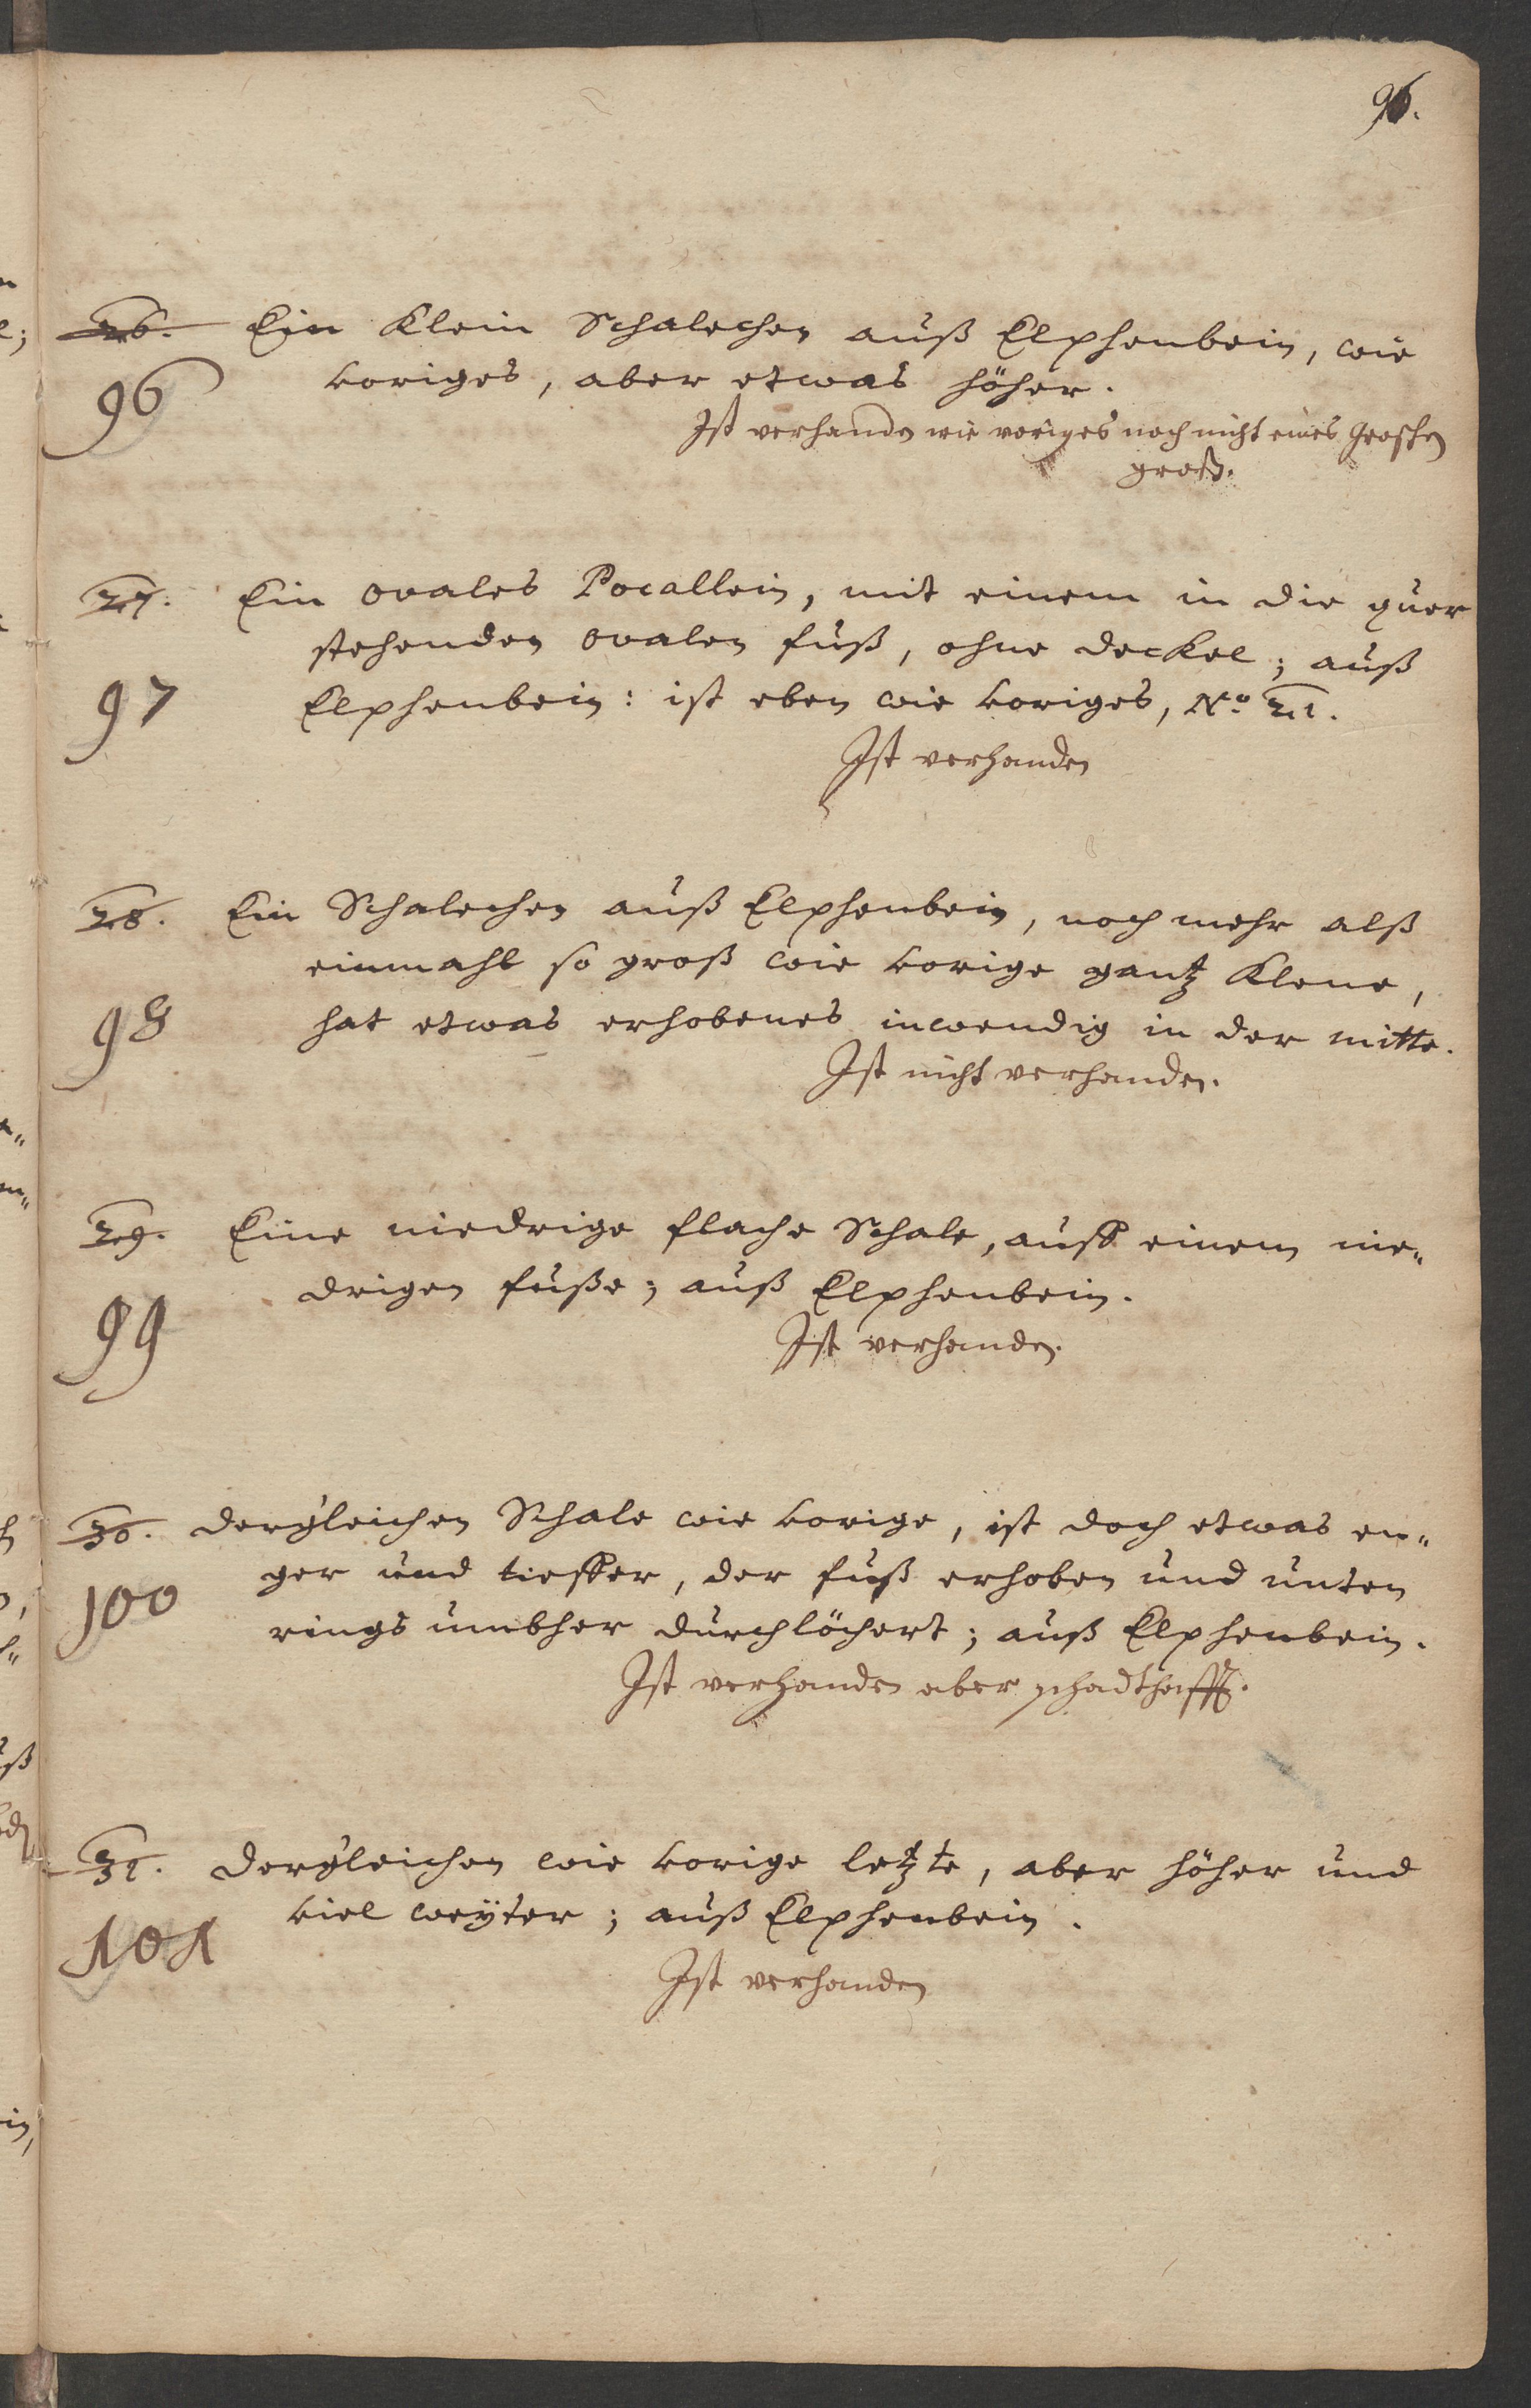 96.
26. Ein Klein Schalechen auß Elphenbein, wie
96
voriges, aber etwas höher.
Ist verhanden wie voriges noch nicht eines Groschen
groß.
27. Ein ovales Pocallein, mit einem in die quer
stehenden ovalen fuß, ohne deckel; auß
97
Elphenbein: ist eben wie voriges, No. 21.
Ist verhanden
28. Ein Schalechen auß Elphenbein, noch mehr alß
einmahl so groß wie vorige gantz Klene,
98
hat etwas erhobenes inwendig in der mitte.
Ist nicht verhanden.
29. Eine niedrige flache Schale, auff einem nie-
drigen fuße; auß Elphenbein.
99
Ist verhanden.
30. dergleichen Schale wie vorige, ist doch etwas en-
ger und tieffer, der fuß erhoben und unten
100
rings umbher durchlöchert; auß Elphenbein.
Ist verhanden aber schadthafft.
31. dergleichen wie vorige letzte, aber höher und
viel weÿter; auß Elphenbein.
101
Ist verhanden